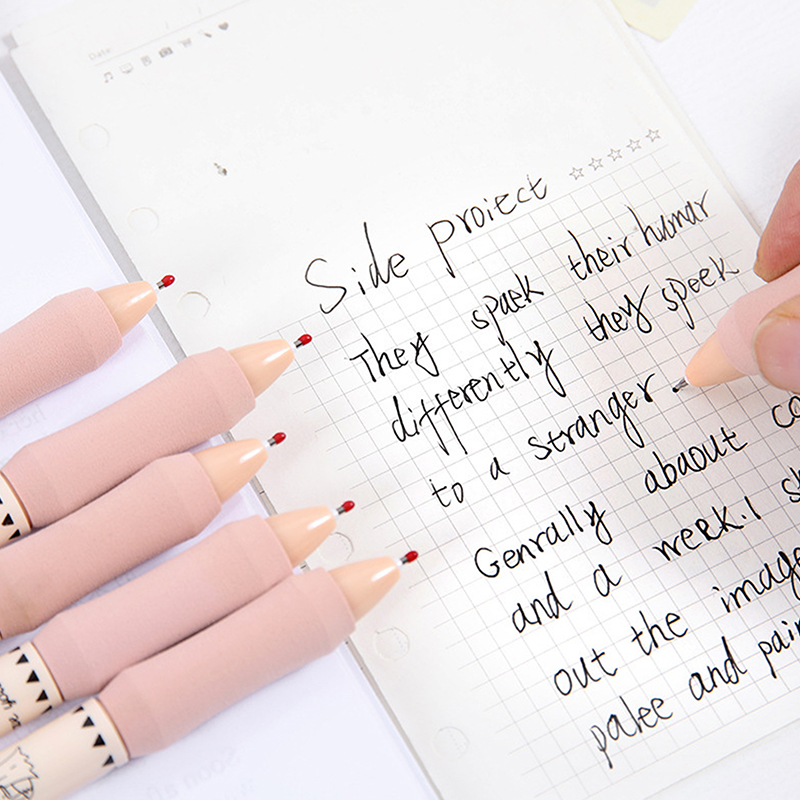 Date.
Side proiect
They spaek their humar
differently they speek
to a stranger
Genrally abaout co
and a werk.I s
out the image
palee and pain